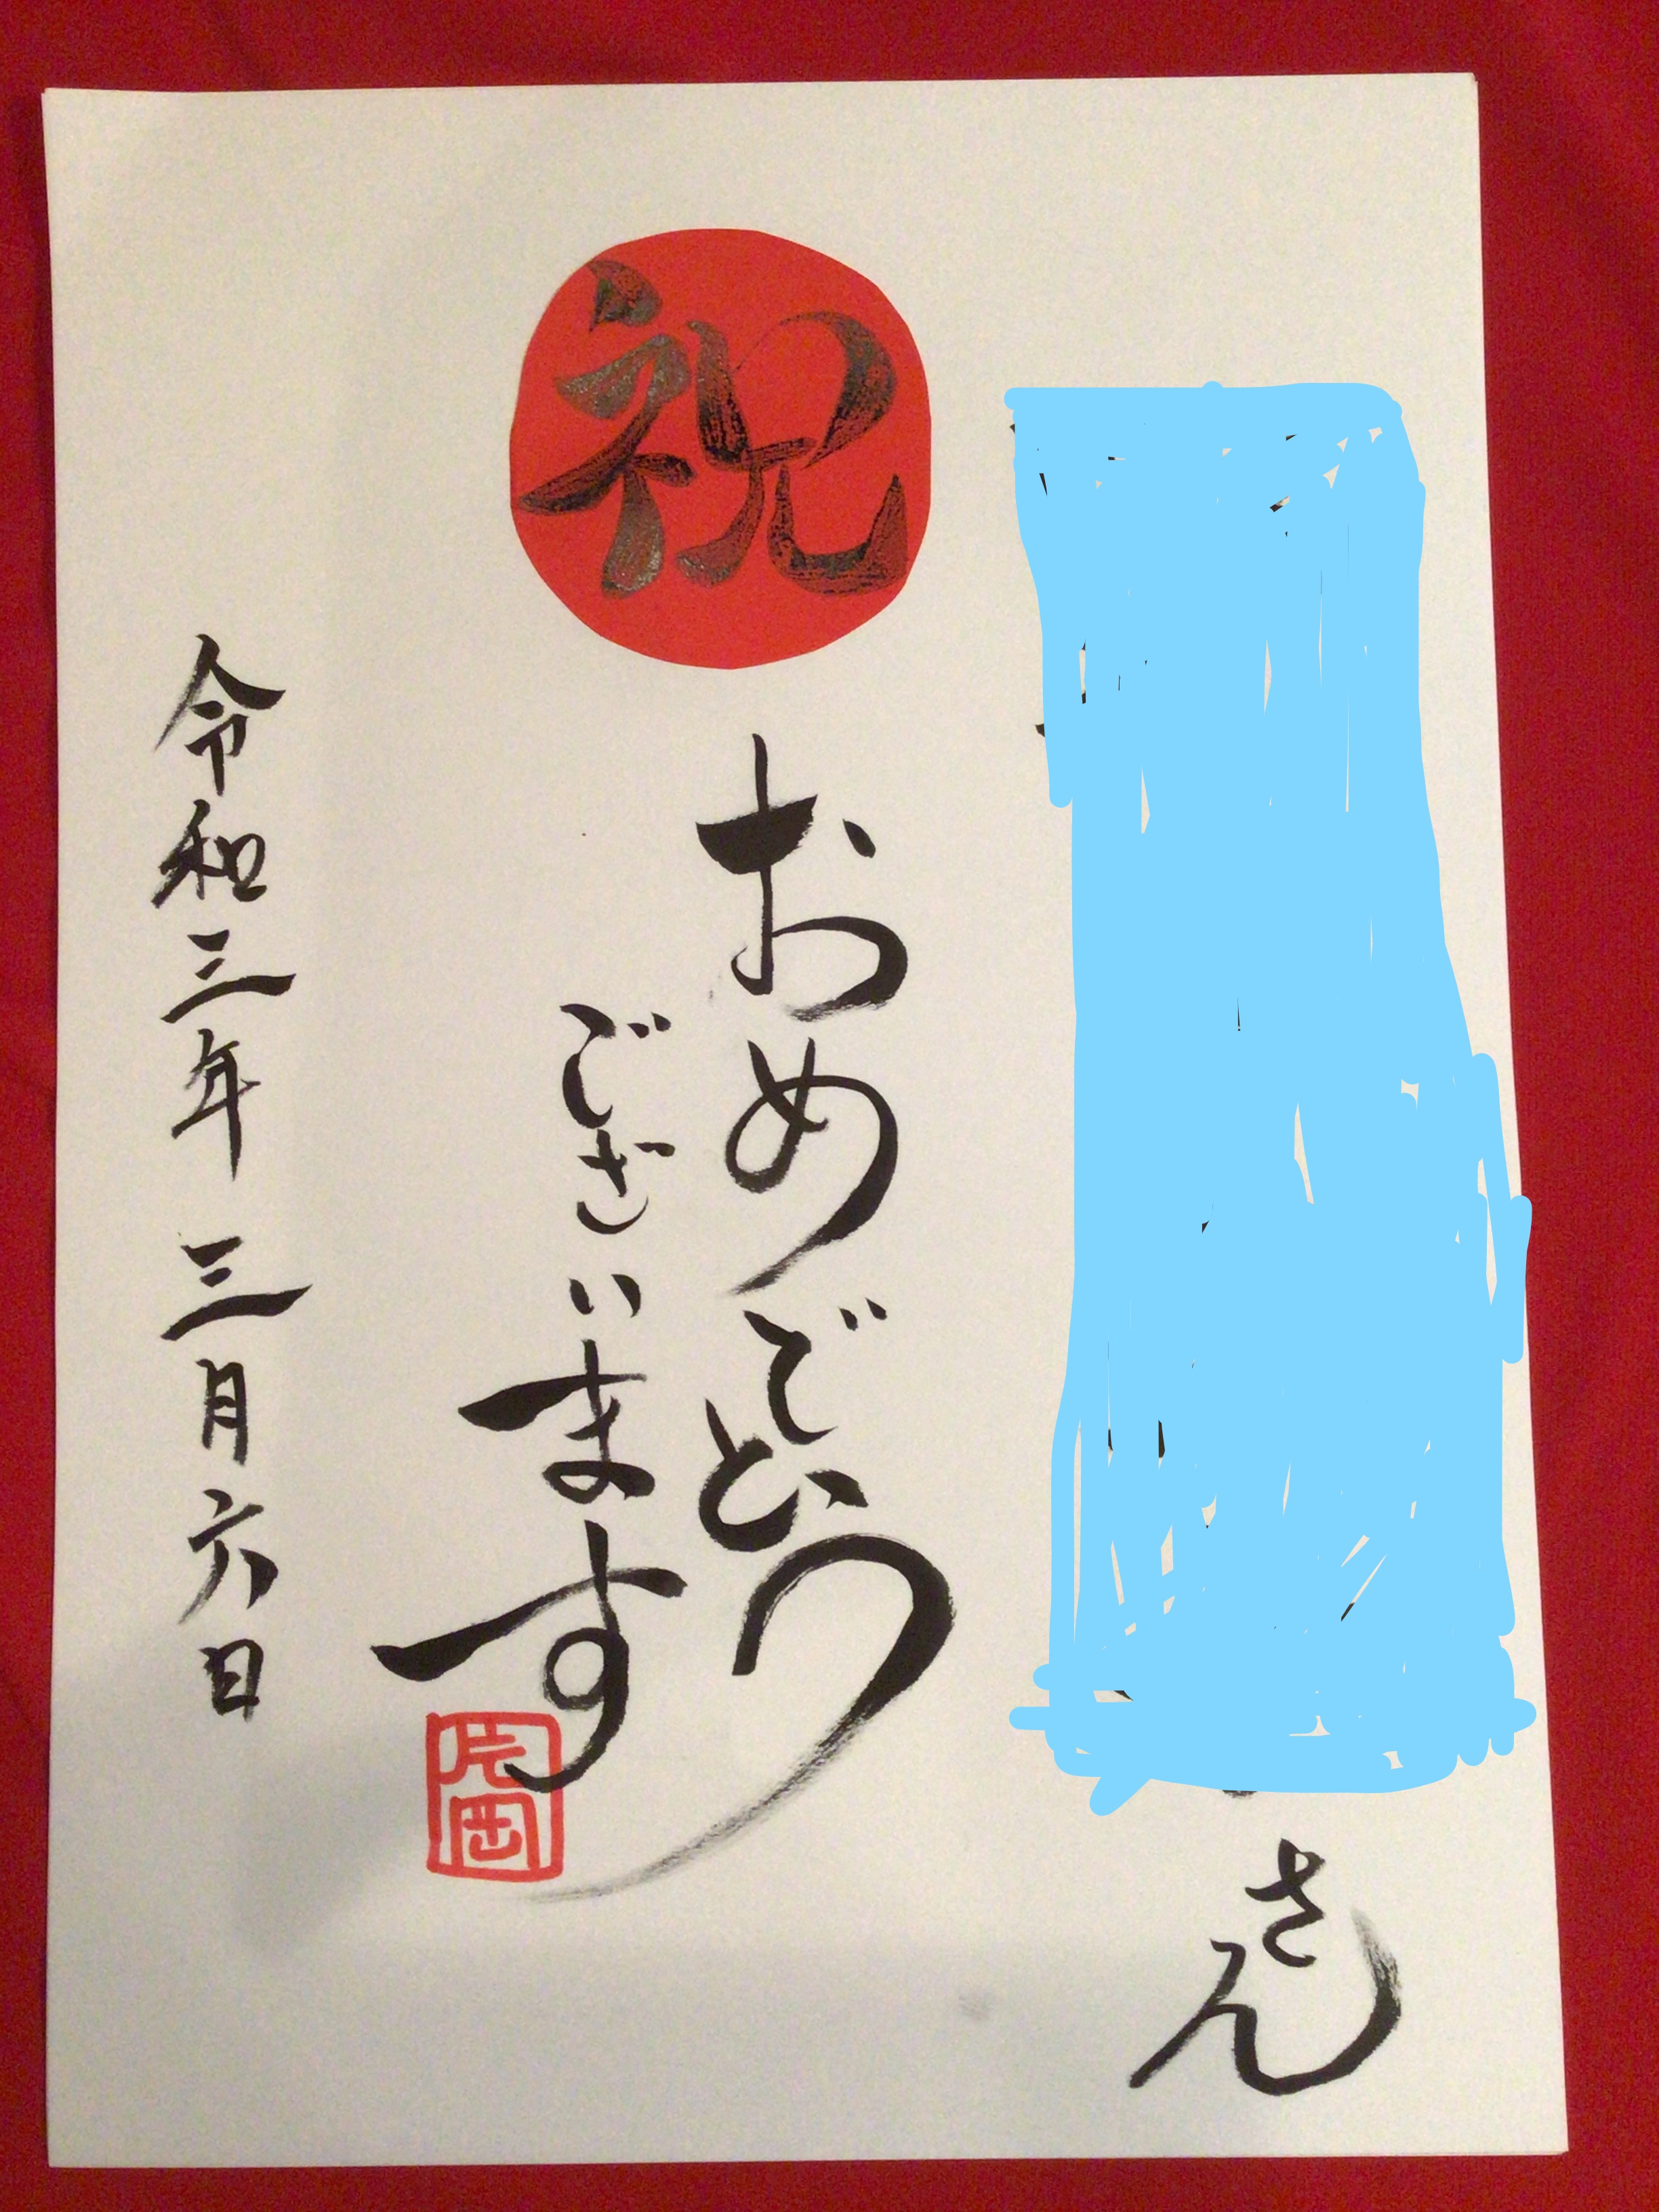 さん
祝
おめでとう
ございます
令和三年 三月六日
片岡